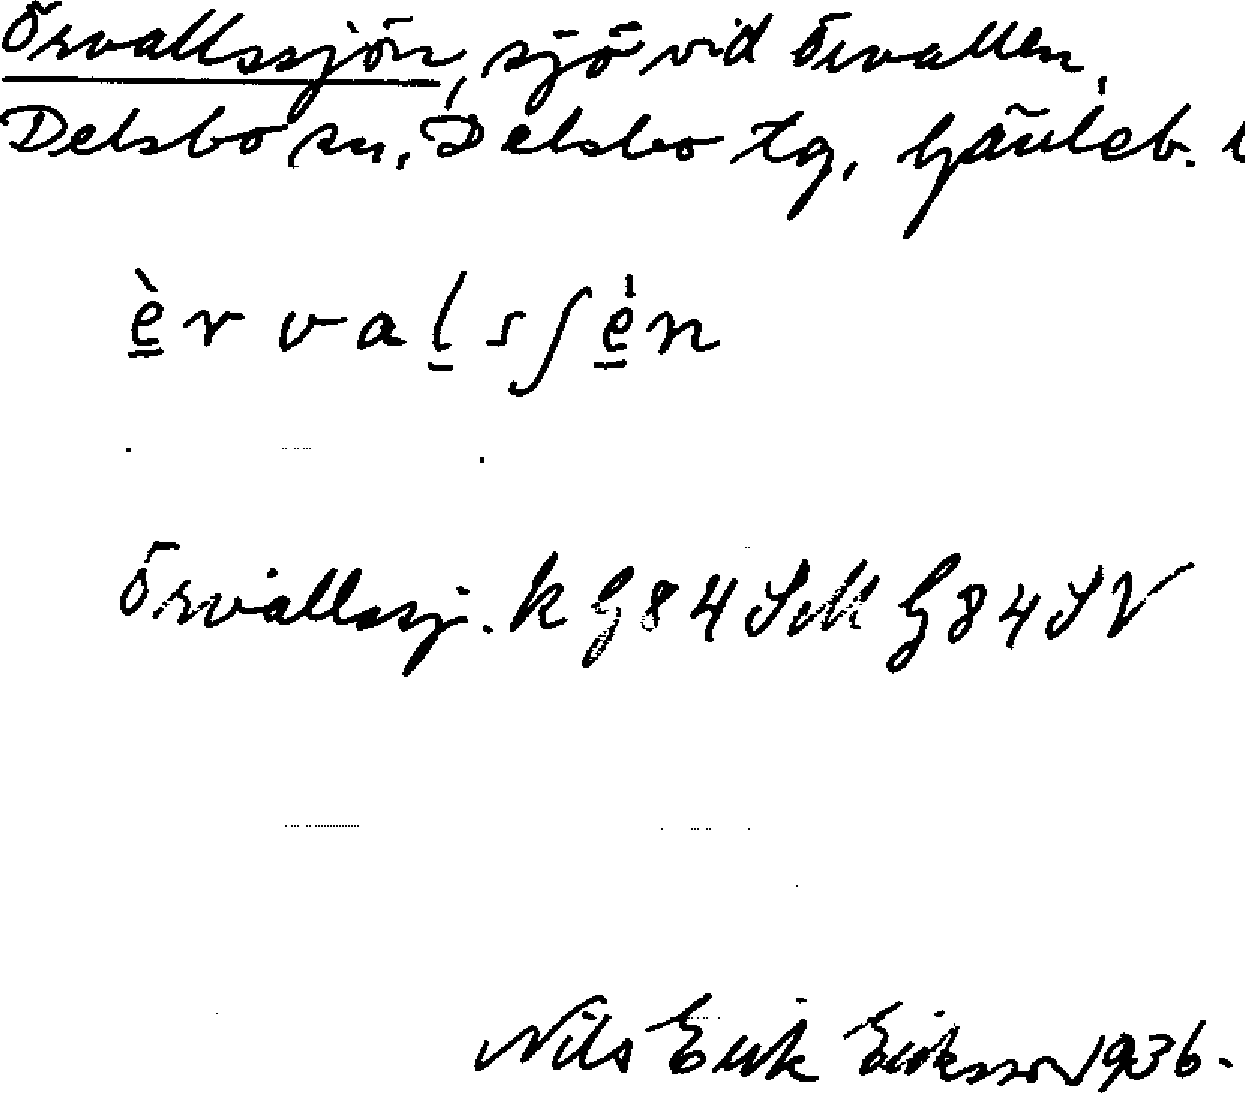 Örvallssjön, sjö vid Örvallen,
Delsbo sn, Delsbo tg, Gävleb. l
è̳rval̠sʃé̳n
Örvallssj. k G84SM G84SV
Nils Erik Eriksson 1936.